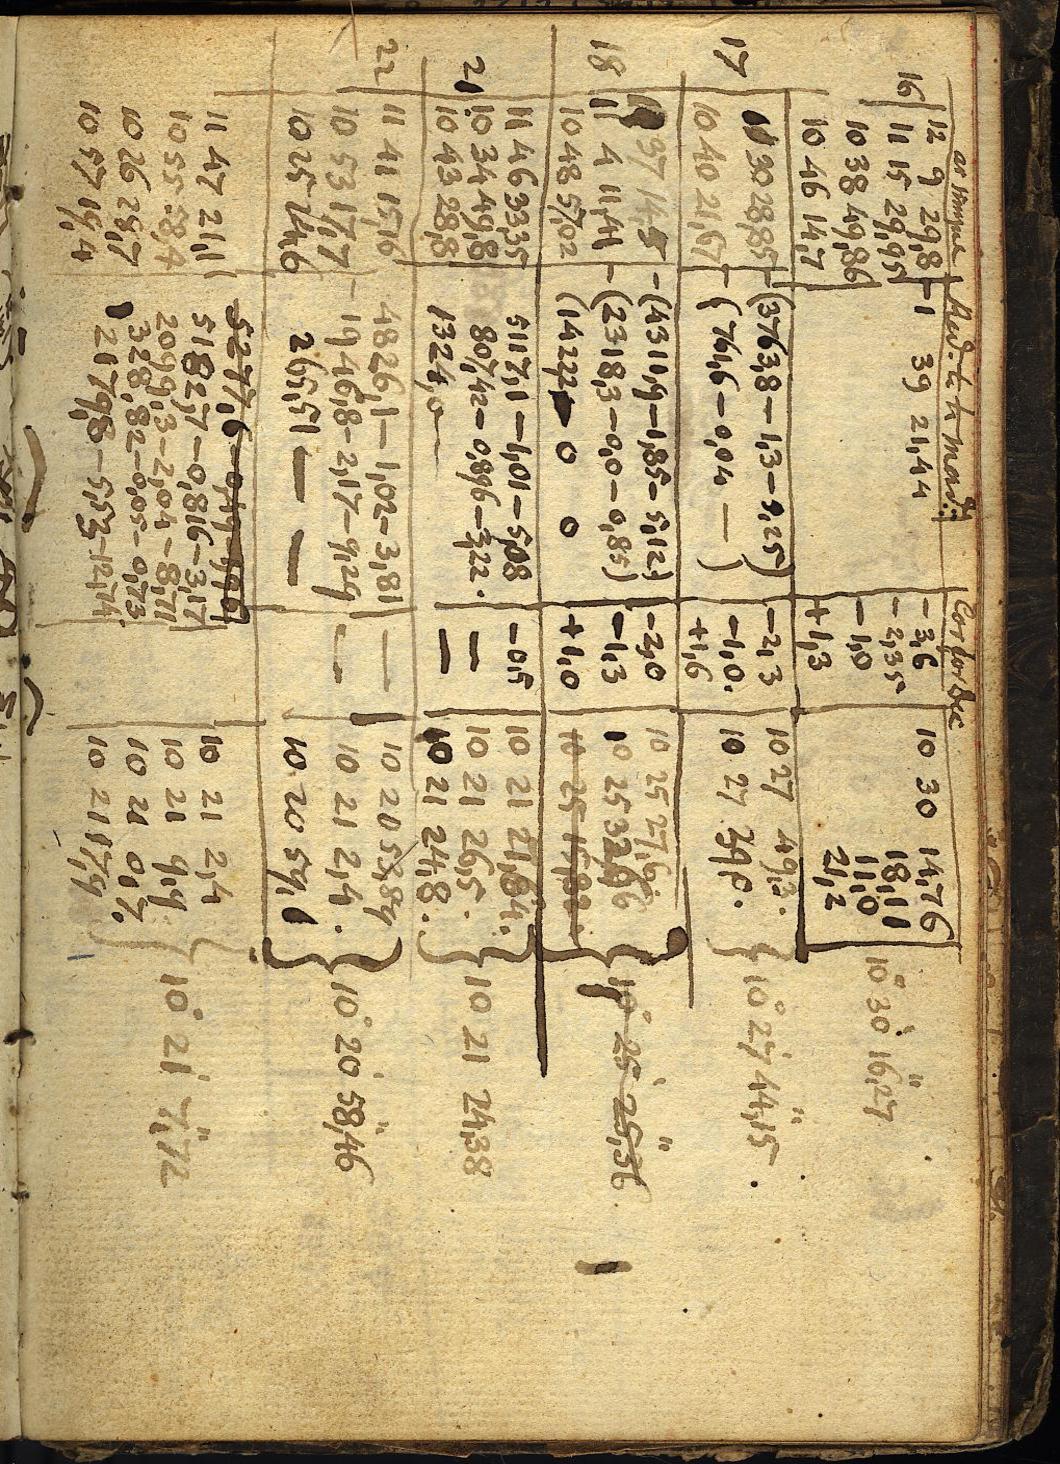 as simple Red. to to merid: Cor for Dec
16 12 9 29,8 - 1 39 21,44 - 3,6 10 30 14,76
11 15 29,95 - 2,35 18,11
10 38 49,86 - 1,0 11,0
10 46 14,7 + 1,3 21,2
10° 30' 16",27
17 11 30 28,85 - (3763,8 - 1,3 - 9,25) - 2,3 10 27 49,3.
10 40 21,67 - (761,6 - 0,04 — ) - 1,0. 10 27 39,0.
+1,6
10° 27' 44",15
18 11 37 14,5 - (4311,9 - 1,85 - 5,12) - 2,0 10 25 27,6.
11 4 11,41 - (2318,3 - 0,0 - 0,85) - 1,3 10 25 32,96
10 48 57,02 (1422,2 0 0 + 1,0 10 25 15,82.
10° 25' 25",36
21 11 46 33,35 5117,1 - 1,01 - 5,08 - 0,5 10 21 21,84.
10 34 49,8 807,42 - 0,896 - 3,22. — 10 21 26,5.
10 43 28,8 1324,0 — — 10 21 24,8.
10 21 24,38
22 11 41 15,16 4826,1 - 1,02 - 3,81 — 10 20 53,84
10 53 17,7 - 1946,8 - 2,17 - 9,24 — 10 21 2,4.
10 25 24,6 265,51 — — 10 20 59,1
10° 20' 58",46
5277,6
11 47 21,1 5182,7 - 0,816 - 3,17 10 21 2,4
10 55 58,4 2099,3 - 2,04 - 8,71 10 21 9,4
10 26 25,7 328,82 - 0,05 - 0,73. 10 21 0,7.
10 57 19,4 2179,8 - 5,53 - 12,74. 10 21 17,9
10° 21' 7",72